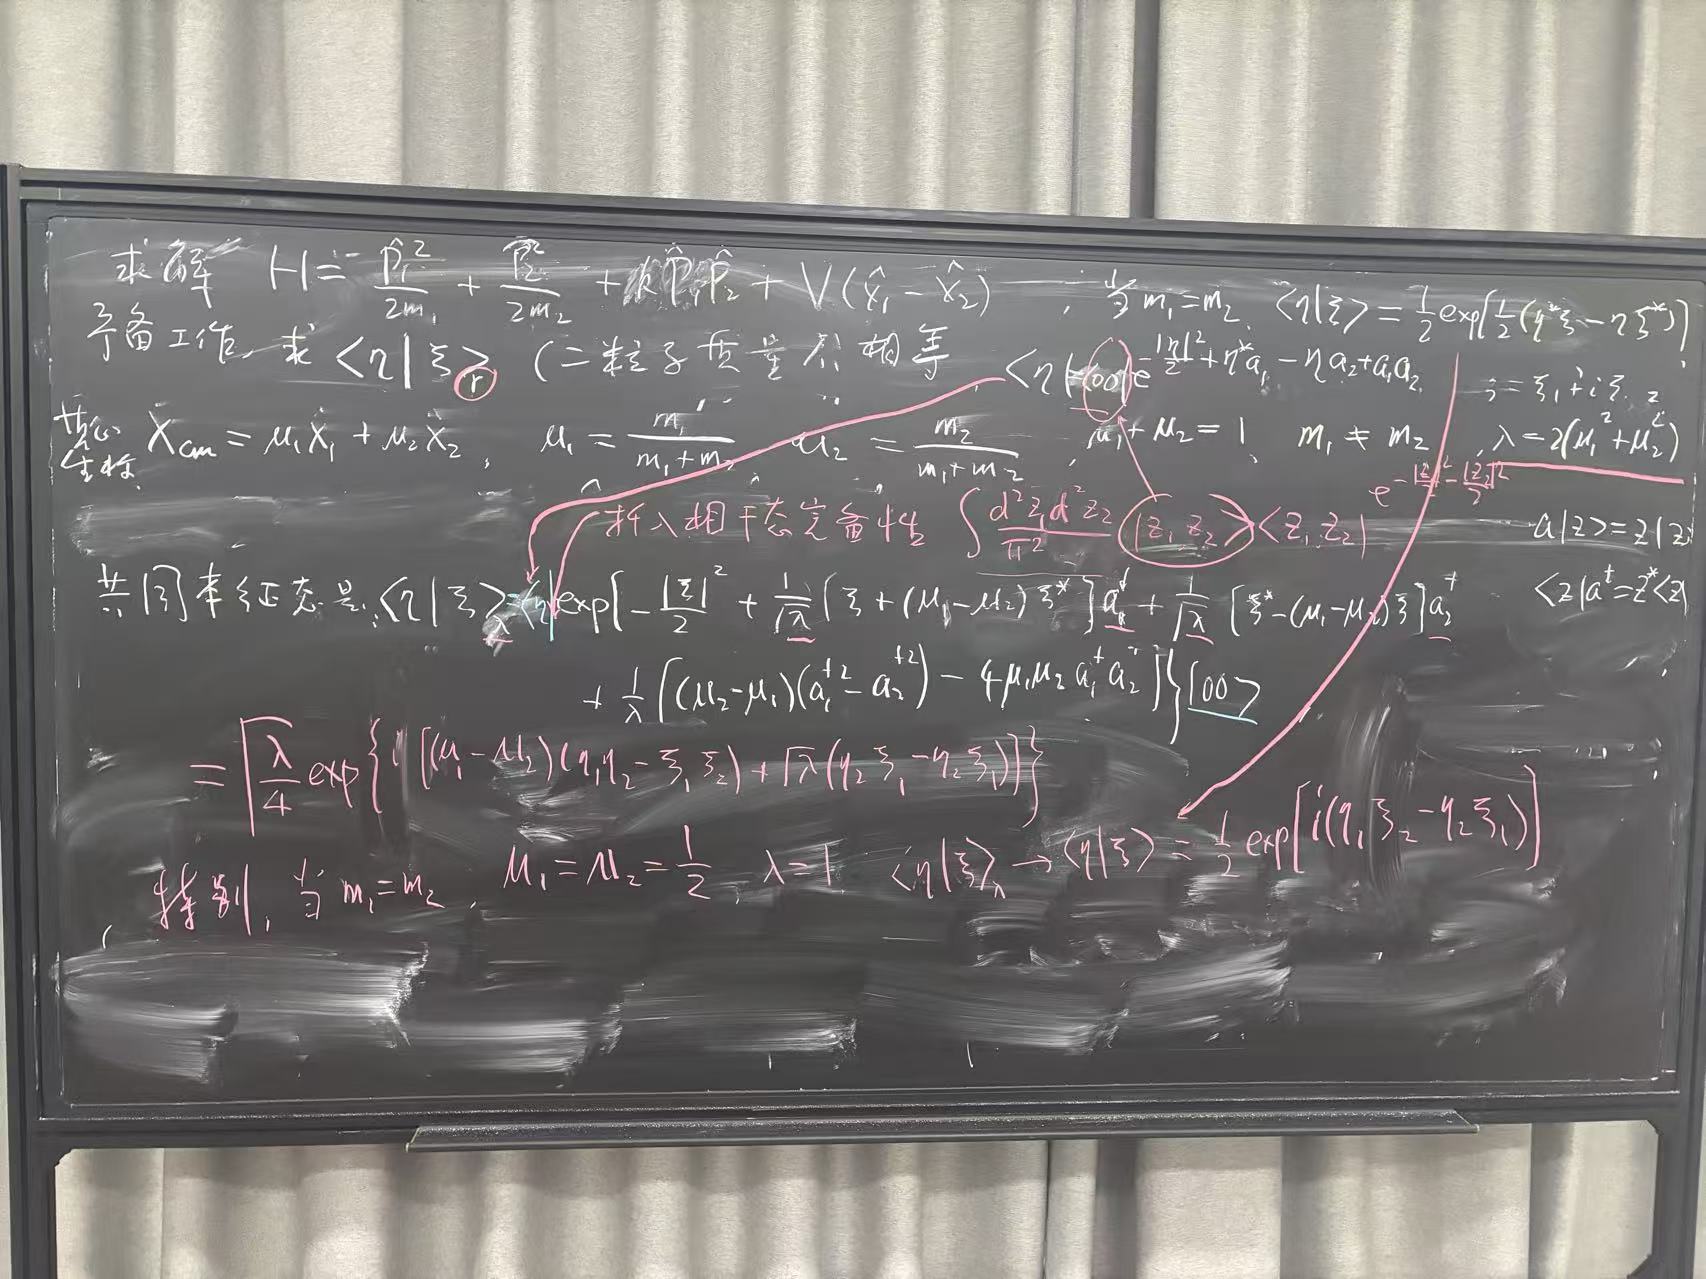 求解 H = p̂₁²/2m₁ + p̂₂²/2m₂ + k p̂₁p̂₂ + V(x̂₁ - x̂₂)
, 当 m₁=m₂, <η|ξ> = 1/2 exp[1/2(η*ξ - ηξ*)]
予备工作, 求 <η|ξ>r (二粒子质量不相等
<η|=<00|e^{-|η|²/2+η*a₁-ηa₂+a₁a₂}
ξ=ξ₁+iξ₂
质心坐标 X_cm = μ₁X₁ + μ₂X₂, μ₁ = m₁/(m₁+m₂), μ₂ = m₂/(m₁+m₂), μ₁+μ₂=1, m₁≠m₂, λ=2(μ₁²+μ₂²)
插入相干态完备性 ∫ d²z₁d²z₂/π² |z₁,z₂><z₁,z₂| e^{-|z₁|²/2-|z₂|²/2}
a|z>=z|z>
<z|a†=z*<z|
共同本征态是 <η|ξ>λ=<η|exp{-|ξ|²/2 + 1/√λ [ξ+(μ₁-μ₂)ξ*]a₁† + 1/√λ [ξ*-(μ₁-μ₂)ξ]a₂†
+ 1/λ [(μ₂-μ₁)(a₁†²-a₂†²) - 4μ₁μ₂a₁†a₂†]}|00>
= √(λ/4) exp{i[(μ₁-μ₂)(η₁η₂-ξ₁ξ₂)+√λ(η₂ξ₁-η₂ξ₁)]}
特别, 当 m₁=m₂, μ₁=μ₂=1/2, λ=1, <η|ξ>λ → <η|ξ> = 1/2 exp[i(η₁ξ₂-η₂ξ₁)]